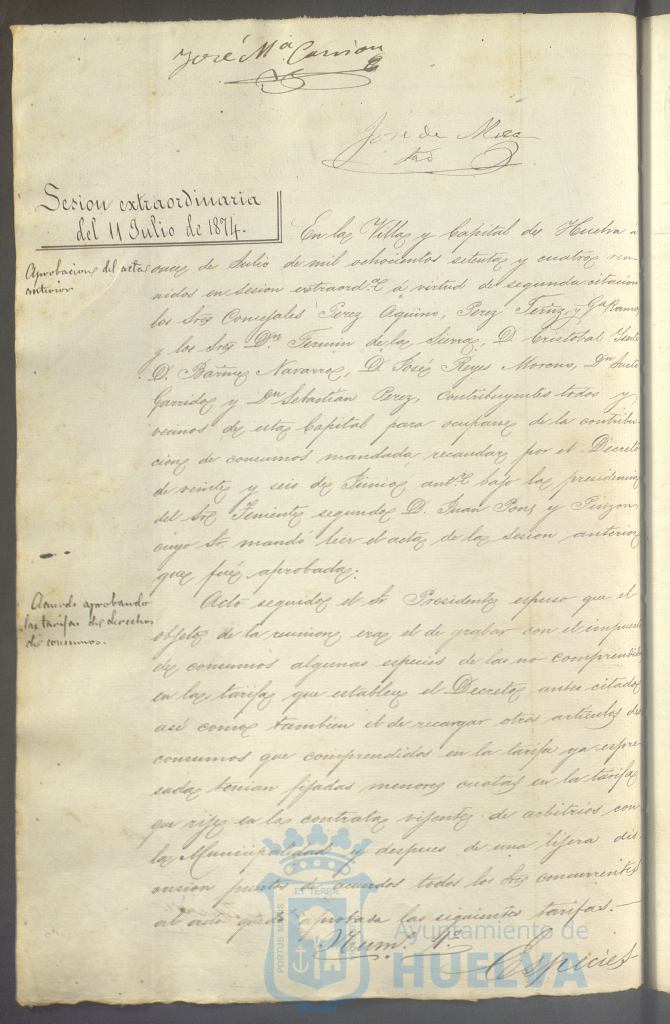 José Mª Carrion
José de Mora
Srio
Sesion extraordinaria
del 11 Julio de 1874.
Aprobacion del acta
anterior
En la Villa y Capital de Huelva á
once de Julio de mil ochocientos setenta y cuatro reu-
nidos en sesion extraord.ª á virtud de segunda citacion
los Sres Concejales Perez Aquino, Perez Ferñz, y Gª Ramos
y los Sres Dn. Fermin de la Serna, D. Cristobal
D. Barme Navarro, D. José Reyes Moreno, Dn Justo
Garrido y Dn Sebastian Perez, contribuyentes todos y
vecinos de esta Capital para ocuparse de la contribu-
cion de consumos mandada recaudar por el Decreto
de veinte y seis de Junio antor. bajo la presidencia
del Sr. Teniente segundo D. Juan Pons y Pinzon
cuyo Sr. mandó leer el acta de la sesion anterior
que fué aprobada.
Acuerdo aprobando
las tarifas de derechos
de consumos.
Acto seguido el Sr Presidente espuso que el
objeto de la reunion era el de grabar con el impuesto
de consumos algunas especies de las no comprendidas
en la tarifa que establece el Decreto antes citado
asi como tambien el de recargar otros articulos de
consumos que comprendidos en la tarifa ya espre-
sada tenian fijadas menores cuotas en la tarifa
que rije en la contrata vijente de arbitrios con
la Municipalidad y despues de una lijera dis-
cusion puestos de acuerdo todos los Sres concurrentes
al acto quedó aprobada las siguientes tarifas.—
Num.º 1º
Especies
PORTUS MARIS
ET TERRÆ
Ayuntamiento de
HUELVA